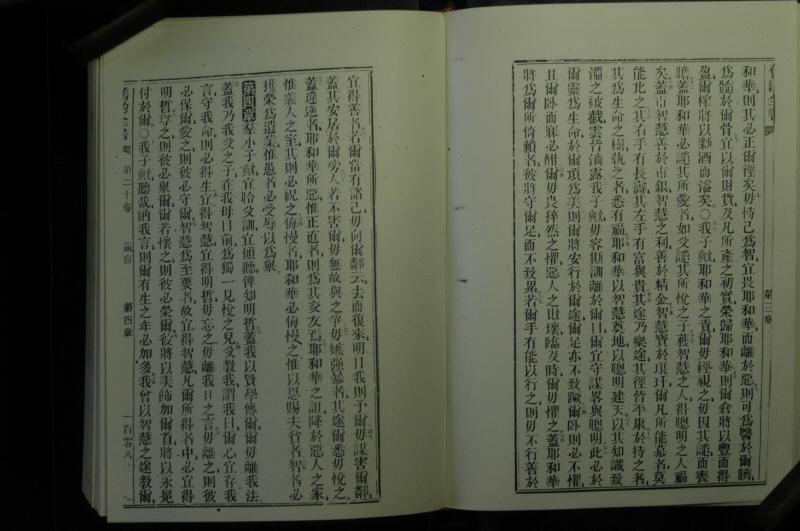 和華則其必正爾徑矣毋持己爲智宜畏耶和華而離於惡則可爲醫於爾臍
爲髓於爾骨宜以爾財貨及凡所產之初實榮歸耶和華則爾倉將以豐而得
盈爾榨將以新酒而溢矣○我子歟耶和華之責爾毋輕視之毋因其譴而喪
膽蓋耶和華必譴其所愛者如父譴其所悅之子獲智慧之人得聰明之人福
矣蓋市智慧善於市銀智慧之利善於精金智慧寶於珉玕爾凡所能慕者莫
能比之其右手有長壽其左手有富與貴其途乃樂途其徑皆平康於持之者
其爲生命之樹執之者悉有福耶和華以智慧奠地以聰明建天以其知識致
淵之被截雲皆滴露我子歟毋容斯訓離於爾目爾宜守謀畧與聰明此必於
爾靈爲生命於爾項爲美則爾將安行於爾途爾足亦不致蹶爾卧則必不懼
且爾卧而寐必酣爾毋畏猝然之懼惡人之敗壞臨及時爾毋懼之蓋耶和華
將爲爾所倚賴者彼將守爾足而不致累若爾手有能以行之則毋不行善於
第三章
宜得善者若爾當有諸己毋向爾鄰云去而復來明日我則予爾毋謀害爾鄰
蓋其安居於爾旁人若不害爾毋無故與之爭毋嫉強暴者其途爾悉毋悅之
蓋違逆者耶和華所惡惟正直者則爲其交友焉耶和華之詛降於惡人之家
惟義人之室其則必祝之侮慢者耶和華必侮慢之惟以恩賜夫貧者智者必
獲榮爲遺業惟愚者必受辱以爲衆
第四章羣小子歟宜聆父訓宜傾聽俾知明哲蓋我以賢學傳爾爾毋離我法
蓋我乃我父之子在我母目前爲獨一見悅之兒父教我謂我曰爾心宜存我
言守我命則必得生宜得智慧宜得明哲毋忘之毋離我口之言毋離之則彼
必保爾愛之則彼必守爾智慧爲至要者故宜得智慧凡爾所得者中必宜得
明哲尊之則彼必舉爾爾若懷之則彼必榮爾彼將以美飾加爾首將以永冕
付於爾○我子歟聽哉納我言則爾有生之年必加多我曾以智慧之途教爾
舊約全書 第二十卷 箴言 第四章 一百零八